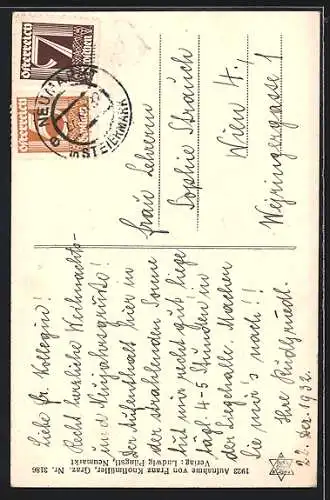 Liebe Fr. Kollegin!
Recht herzliche Weihnachts-
und Neujahrsgrüße!
Der Aufenthalt hier in
der strahlenden Sonne
tut mir recht gut, liege
tägl. 4-5 Stunden in
der Liegehalle. Machen
Sie mir's nach!!
Ihre
22. Dez. 1932.
Frau Lehrerin
Sophie Strauch
Wien 4.,
Weyringergasse 1
Österreich
7
Österreich
NEUMARKT
STEIERMARK
1923 Aufnahme von Franz Knollmüller, Graz. Nr. 3186
Verlag: Ludwig Püngastl, Neumarkt